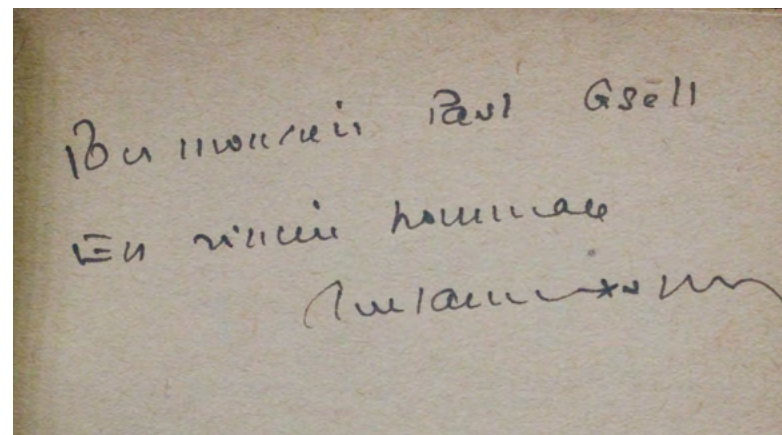 Pour monsieur Paul Gsell
En sincère hommage